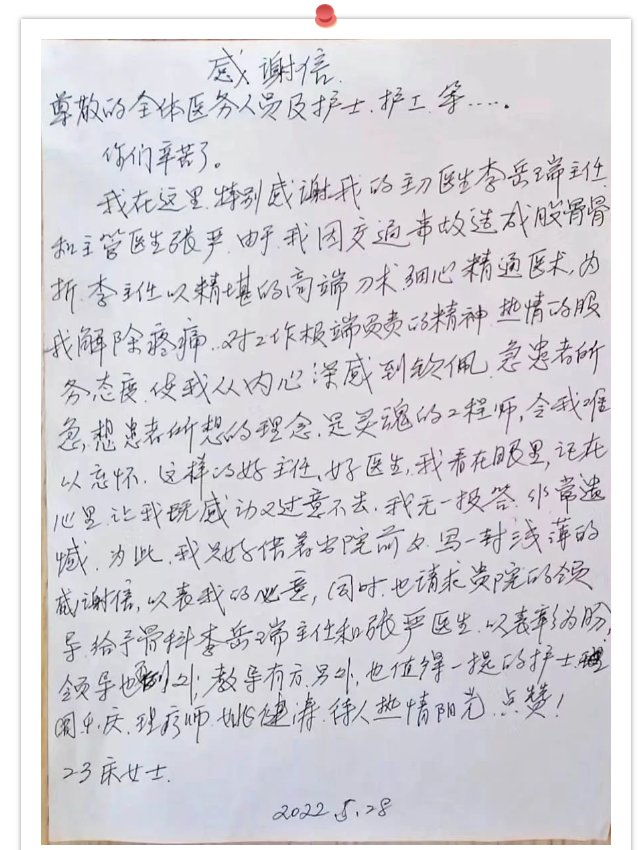 感谢信.
尊敬的全体医务人员及护士.护工.等……。
你们辛苦了。
我在这里.特别感谢我的主刀医生李岳瑞主任
和主管医生张严.由于我因交通事故造成股骨骨
折.李主任以精堪的高端刀术细心精通医术,为
我解除疼痛.对工作极端负责的精神.热情的服
务态度.使我从内心深感到钦佩.急患者所
急,想患者所想的理念.是灵魂的工程师,令我难
以忘怀.这样的好主任、好医生,我看在眼里,记在
心里.让我既感动又过意不去.我无一报答.非常遗
憾.为此.我只好借着出院前夕.写一封浅薄的
感谢信,以表我的心意,同时.也请求贵院的领
导.给予骨科李岳瑞主任和张严医生.以表彰为盼,
领导也 教导有方.另外,也值得一提的护士
周乐庆.理疗师. 待人热情阳光.点赞!
23床女士.
2022.5.28